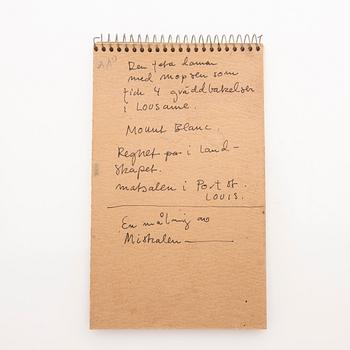 Den feta damen
med mopsen som
fick 4 gräddbakelser
i LOUSANNE.
Mount Blanc.
Regnet på i Land-
skapet.
matsalen i Port St.
LOUIS.
En målning av
Mistralen